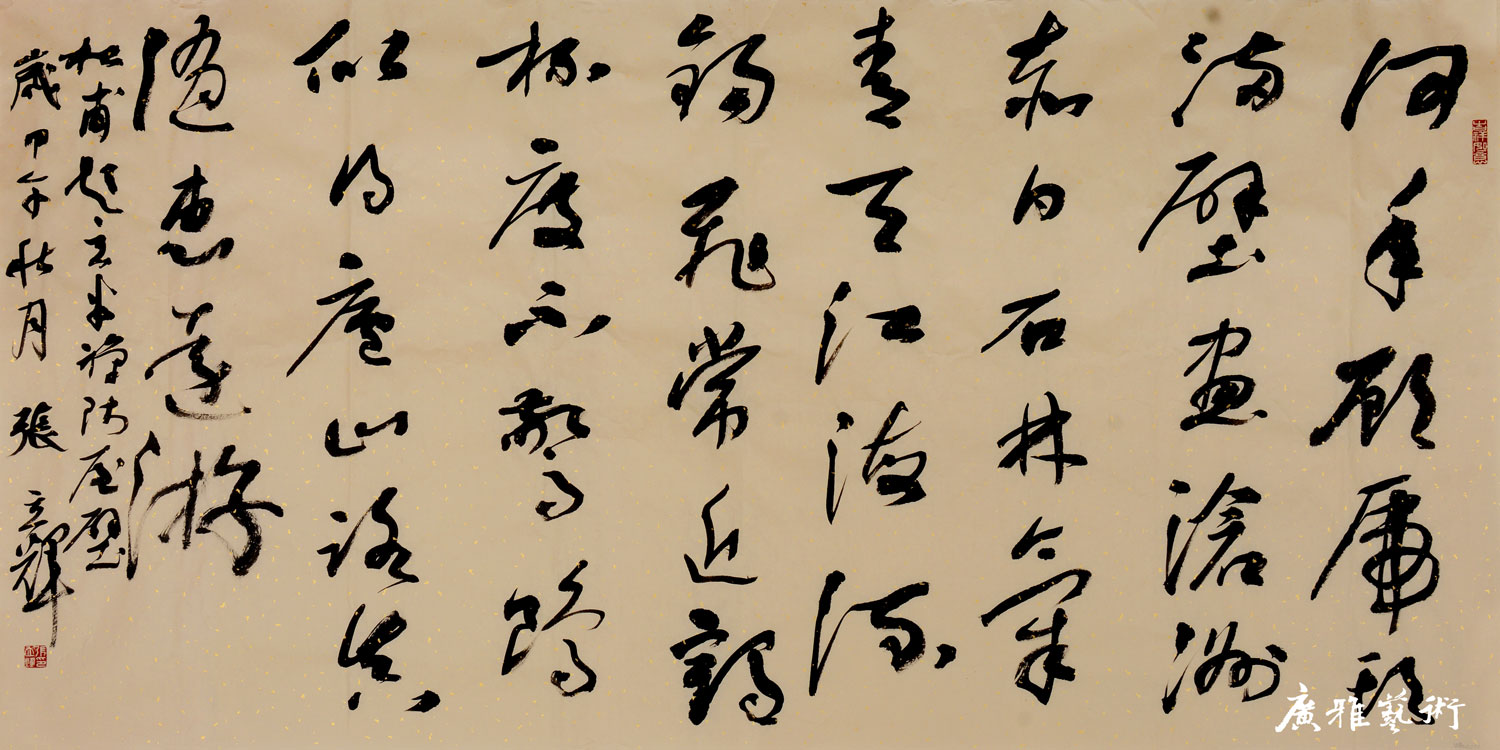 何年顧虎頭
滿壁畫滄洲
赤日石林氣
青天江海流
錫飛常近鶴
杯度不驚鷗
似得廬山路真
隨惠遠游
杜甫題玄武禪師屋壁
歲甲午秋月 張立輝
廣雅藝術